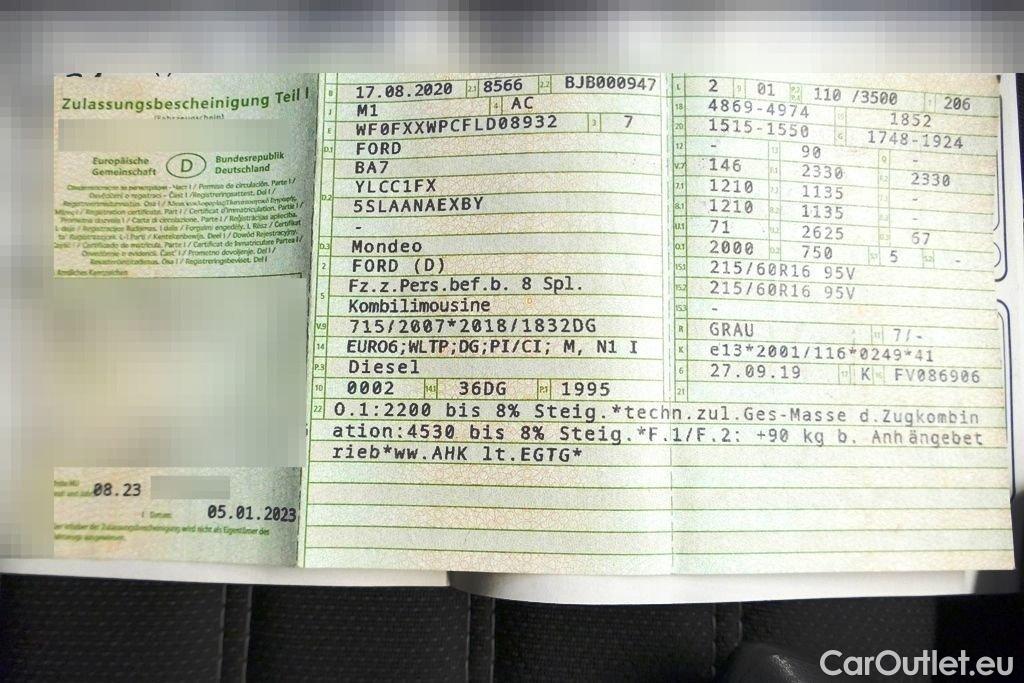 Zulassungsbescheinigung Teil I
(Fahrzeugschein)
Europäische
Gemeinschaft
D
Bundesrepublik
Deutschland
Amtliches Kennzeichen
08.23
05.01.2023
B 17.08.2020 2.1 8566 2.2 BJB000947
J M1 4 AC
E WF0FXXWPCFLD08932 3 7
D.1 FORD
BA7
D.2 YLCC1FX
5SLAANAEXBY
-
D.3 Mondeo
2 FORD (D)
5 Fz.z.Pers.bef.b. 8 Spl.
Kombilimousine
V.9 715/2007*2018/1832DG
14 EURO6;WLTP;DG;PI/CI; M, N1 I
P.3 Diesel
10 0002 14.1 36DG P.1 1995
L 2 9 01 110 /3500 T 206
18 4869-4974 1852
20 1515-1550 G 1748-1924
12 - 13 90 Q -
V.7 146 F.1 2330 F.2 2330
7.1 1210 7.2 1135 -
8.1 1210 8.2 1135 -
U.1 71 U.2 2625 U.3 67
O.1 2000 O.2 750 S.1 5 S.2 -
15.1 215/60R16 95V
15.2 215/60R16 95V
15.3 -
R GRAU 11 7/-
K e13*2001/116*0249*41
6 27.09.19 17 K 16 FV086906
21
22 O.1:2200 bis 8% Steig.*techn.zul.Ges-Masse d.Zugkombin
ation:4530 bis 8% Steig.*F.1/F.2: +90 kg b. Anhängebet
rieb*ww.AHK lt.EGTG*
CarOutlet.eu